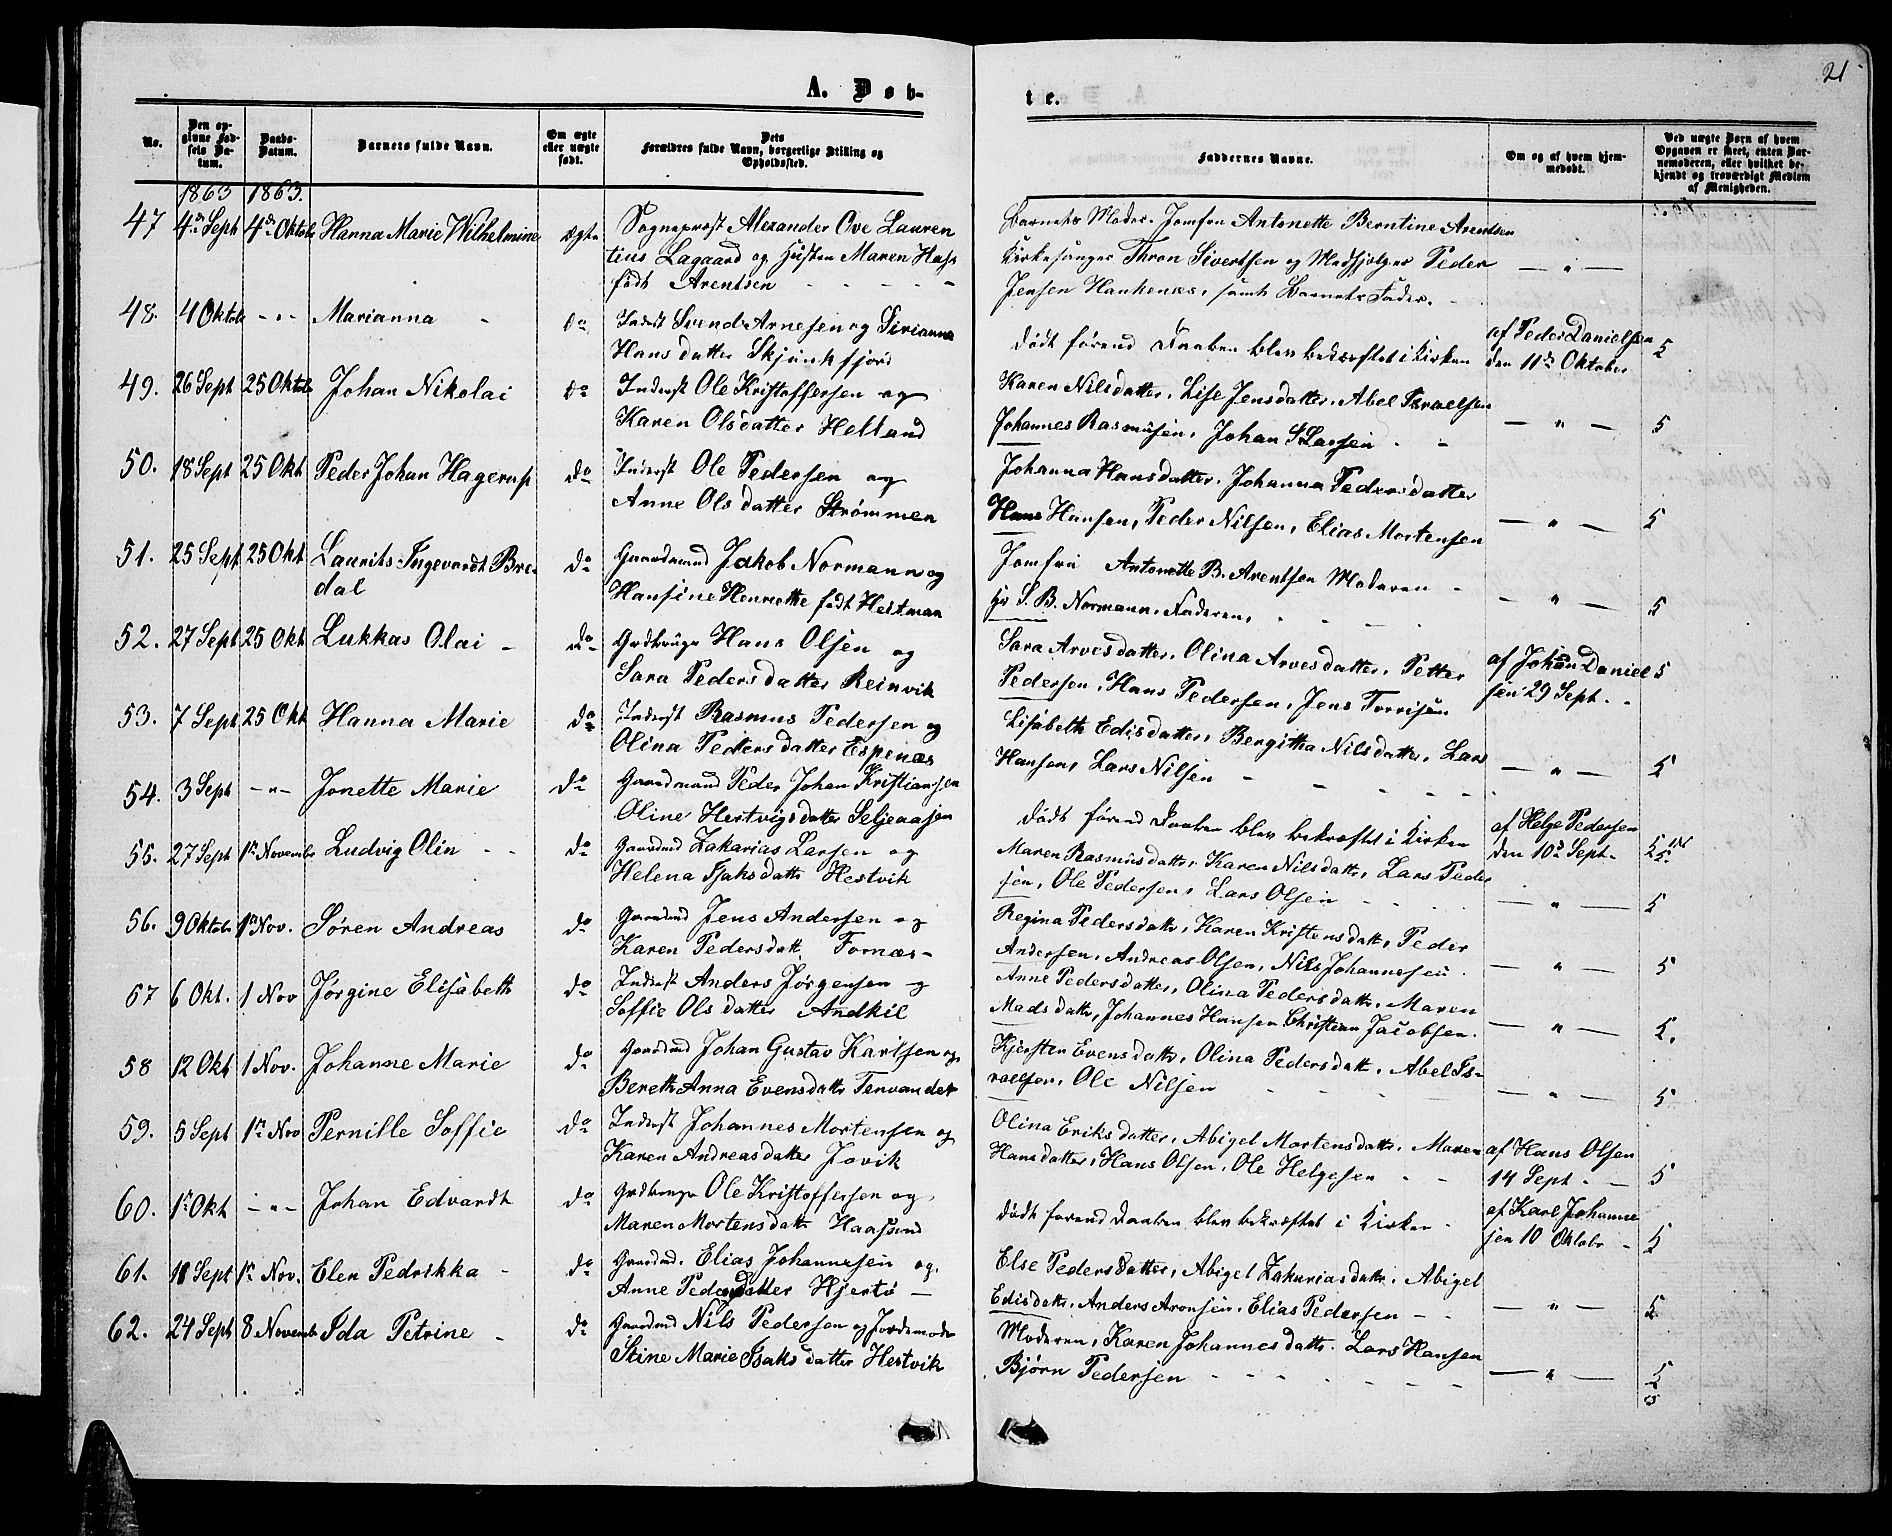 21
A. Døb-
te.
No.
Den op-
givne Fød-
sels Da-
tum.
Daabs-
Datum.
Barnets fulde Navn.
Om ægte
eller uægte
født.
Dets
Forældres fulde Navn, borgerlige Stilling og
Opholdssted.
Faddernes Navne.
Om og af hvem hjem-
medøbt.
Ved uægte Børn af hvem
Opgaven er skeet, enten Bar-
nemoderen, eller hvilket be-
kjendt og troværdigt Medlem
af Menigheden.
1863 1863.
47 4de Sept 4de Oktob Hanna Marie Wilhelmine ægte Sogneprest Alexander Ove Lauren
tius Lagaard og Hustru Maren
født Arentsen
Barnets Moder. Jomfru Antonette Berntine Arentsen
Kirkesanger Thron Sivertsen og Medhjælper Peder
Jensen Hankenæs, samt Barnets Fader.
— " —
48. 4 Oktob - " - Marianna - do Inderst Svend Arnesen og Sirianna
Hansdatter Skjünkfjord
Dødt førend Daaben blev bekræftet i Kirken
af Peder Danielsen
den 11te Oktober 5
49. 26 Sept 25 Oktob Johan Nikolai do Inderst Ole Kristoffersen og
Karen Olsdatter Helland
Karen Nilsdatter, Lise Jensdatter, Abel Israelsen
Johannes Rasmusen, Johan S Larsen
— " — 5
50. 18 Sept 25 Okt Peder Johan Hagerup do Inderst Ole Pedersen og
Anne Olsdatter Strømmen
Johanna Hansdatter, Johanna Pedersdatter
Hans Hansen, Peder Nilsen, Elias Mortensen
— " — 5
51. 25 Sept 25 Okt Laurits Ingevardt Bre-
dal do Gaardmand Jakob Normann og
Hansine Henriette født Heitman
Jomfru Antonette B. Arentsen Moderen -
Hr S. B. Normann, Faderen,
— " — 5
52. 27 Sept 25 Okt Lukkas Olai - do Grdbruger Hans Olsen og
Sara Pedersdatter Reinvik
Sara Arvesdatter, Olina Arvesdatter, Petter
Pedersen, Hans Pedersen, Jens Torrisen
af Johan Daniel
sen 29 Sept. 5
53. 7 Sept 25 Okt Hanna Marie do Inderst Rasmus Pedersen og
Olina Pedersdatter Espenæs
Lisabeth Edisdatter, Bergitha Nilsdatter, Lars
Hansen, Lars Nilsen -
— " — 5
54. 3 Sept - " - Jonette Marie do Gaardmand Peder Johan Kristiansen
Oline Hertvigsdatter Seljeaasen
Dødt førend Daaben blev bekræftet i Kirken
af Helge Pedersen
den 10de Sept. 5
55. 27 Sept 1ste Novembr Ludvig Olin - - do Gaardmd Zakarias Larsen og
Helena Isaksdattr Hestvik
Maren Rasmusdatter, Karen Nilsdatter, Lars Peder
sen, Ole Pedersen, Lars Olsen
— " — 5
56. 9 Oktob 1ste Nov. Søren Andreas do Gaardmd Jens Andersen og
Karen Pedersdatt Fornæs-
Regina Pedersdatt, Karen Kristensdatt, Peder
Andersen, Andreas Olsen, Nils Johannesen
— " — 5
57 6 Okt. 1 Nov Jørgine Elisabeth do Inderst Anders Jørgensen og
Soffie Olsdatter Andkil
Anne Pedersdatter, Olina Pedersdattr, Maren
Madsdattr, Johannes Hansen Christian Jacobsen.
— " — 5.
58 12 Okt 1 Nov. Johanne Marie do Gaardmd Johan Gustav Karlsen og
Bereth Anna Evensdattr Fenvandet
Kjersten Evensdattr, Olina Pedersdattr, Abel Is-
raelsen, Ole Nilsen
— " — 5
59. 5 Sept 1ste Nov Pernille Soffie do Inderst Johannes Mortensen og
Karen Andreasdatter Jøvik
Olina Eriksdatter, Abigel Mortensdattr, Maren
Hansdatter, Hans Olsen, Ole Helgesen
af Hans Olsen
14 Sept. - 5
60. 1ste Okt - " - Johan Edvardt do Grdbruger Ole Kristoffersen og
Maren Mortensdattr Haasund
dødt førend Daaben blev bekræftet i Kirken.
af Karl Johanne
sen 10 Oktobr - 5
61. 18 Sept 1ste Nov. Elen Pedrikka - do Gaardmd. Elias Johannesen og
Anne Pedersdatter Hjertø —
Else Pedersdatter, Abigel Zakariasdattr, Abigel
Edisdattr, Anders Aronsen, Elias Pedersen -
— " — 5
62. 24 Sept 8 Novembr Ida Petrine - do Gaardmd Nils Pedersen og Jordemoder
Stine Marie Isaksdatter Hestvik
Moderen, Karen Johannesdattr. Lars Hansen
Bjørn Pedersen
— " — 5